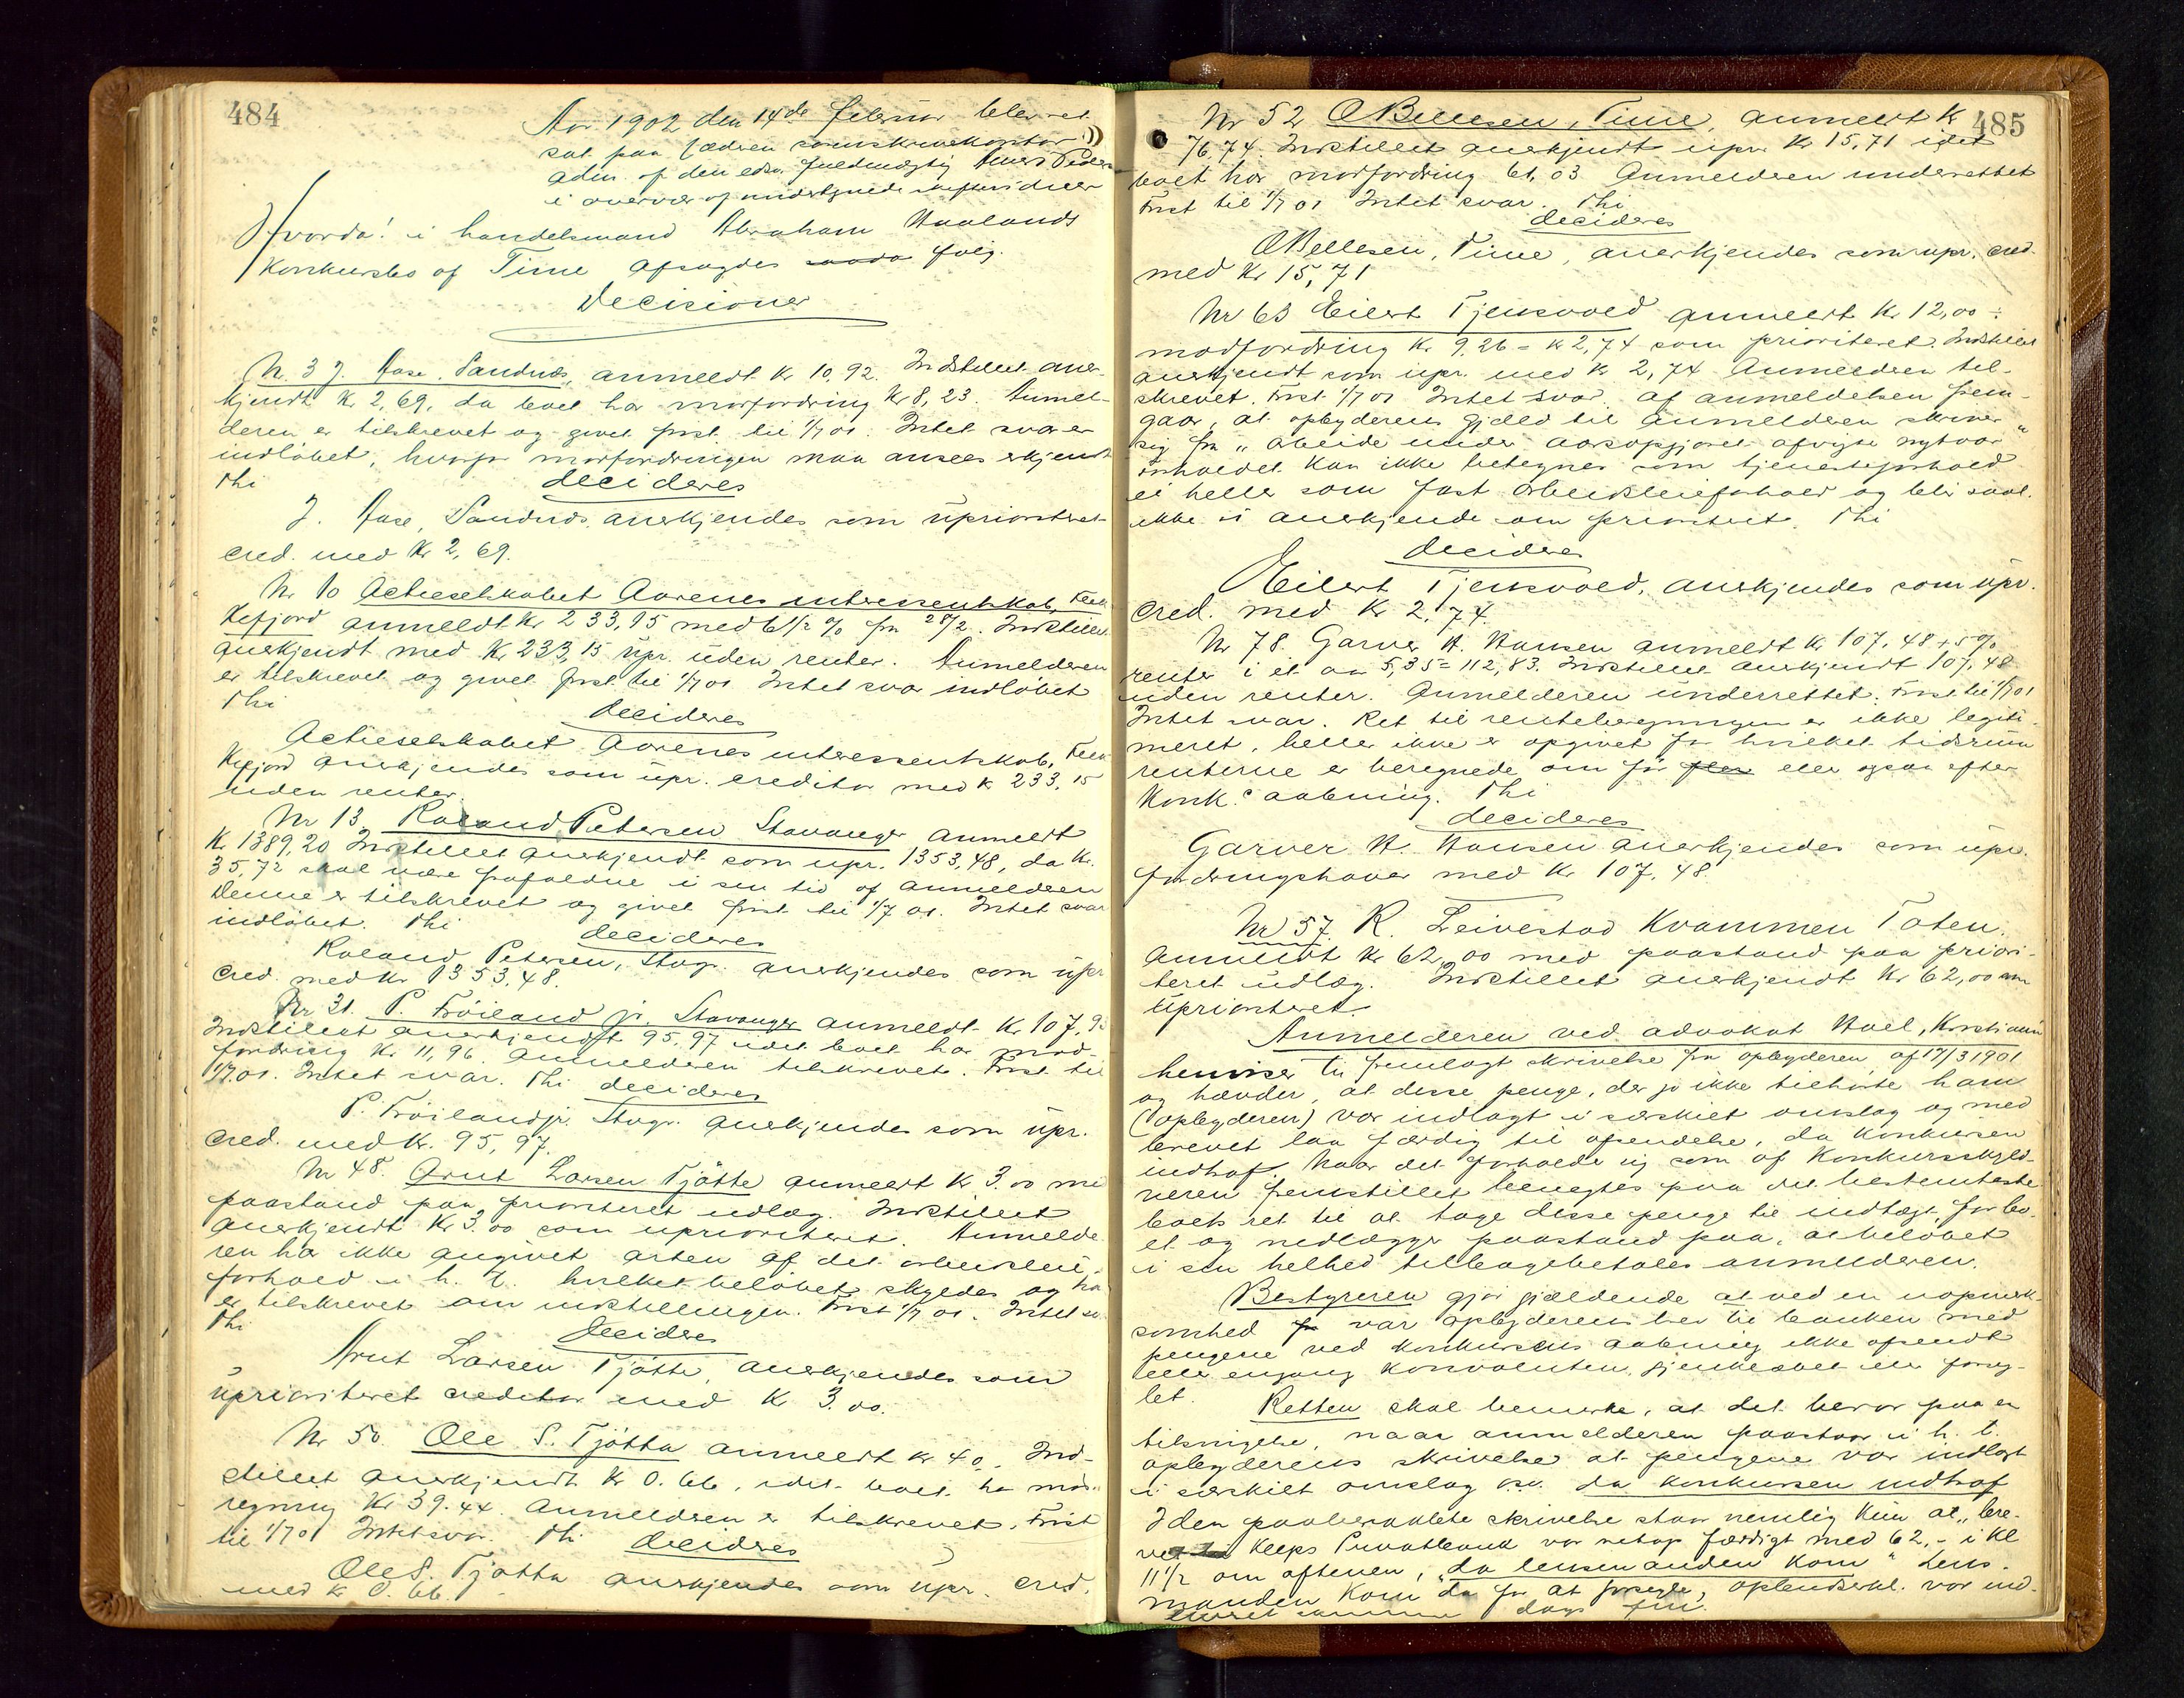 484
Aar 1902 den 14de februar blev ret
sat paa Jæderen sorenskriverkontor
adm. af den edsv. fuldmægtig
i overvær af undertegnede
Hvorda: i handelsmand Abraham Haalands
Konkursbo af Time afsagdes saada følg.
Decisioner
N. 3 J. Aase, Sandnæs, anmeldt kr 10,92. Indstillet aner-
kjendt kr. 2,69, da boet har modfordring kr 8,23. Anmel-
deren er tilskrevet og givet frist til 1/7 01. Intet svar er
indløbet, hvorfor modfordringen maa ansees erkjendt
Thi
decideres
J. Aase, Sandnæs, anerkjendes som uprioriteret
cred. med kr 2,69.
Nr 10 Actieselskabet Aarenes interessentskab, Flek-
kefjord anmeldt kr 233,15 med 6 1/2 % fra 28/2. Indstillet
anerkjendt med kr 233,15 upr. uden renter. Anmelderen
er tilskrevet og givet frist til 1/7 01 Intet svar indløbet
Thi
decideres
Actieselskabet Aarenes interessentskab, Flek-
kefjord anerkjendes som upr. creditor med k 233,15
uden renter.
Nr 13 Roland Petersen Stavanger anmeldt
kr 1389,20 Indstillet anerkjendt som upr. 1353,48, da kr.
35,72 skal være frafaldne i sin tid af anmelderen
Denne er tilskrevet og givet frist til 1/7 01. Intet svar
indløbet. Thi
decideres
Roland Petersen, Stvgr. anerkjendes som upr
cred. med kr 1353,48.
Nr 31. P. Tröiland jr. Stavanger anmeldt kr 107,93
Indstillet anerkjendt 95,97 idet boet har mod-
fordring kr 11,96. Anmelderen tilskrevet. Frist til
1/7 01. Intet svar. Thi decideres
P. Tröiland jr. Stvgr. anerkjendes som upr.
cred. med kr. 95,97.
Nr 48. Arnt Larsen Tjötte anmeldt k 3.00 me
paastand paa prioriteret udlæg. Indstillet
anerkjendt kr 3.00 som uprioriteret. Anmelde
ren har ikke angivet arten af det arbeidsleie-
forhold i h. t. hvilket beløbet skyldes og ha
er tilskrevet om indstillingen. Frist 1/7 01. Intet sv
Thi
decideres
Arnt Larsen Tjötte, anerkjendes som
uprioriteret creditor med k 3.00.
Nr 50 Ole S. Tjötta anmeldt kr 40. Ind-
stillet anerkjendt kr 0.66, idet boet ha mod-
regning kr 39.44. Anmelderen er tilskrevet. Frist
til 1/7 01 Intet svar. Thi decideres
Ole S. Tjötta anerkjendes som upr. cred.
med k 0.66.
485
Nr 52 O Bellesen, Time, anmeldt k
76,74. Indstillet anerkjendt upr. kr 15,71 idet
boet har modfordring 61.03. Anmelderen underrettet
Frist til 1/7 01 Intet svar. Thi
decideres
O Bellesen, Time, anerkjendes som upr. cred.
med kr 15,71
Nr 63 Eilert Tjensvold anmeldt kr 12,00 ÷
modfordring kr 9.26 = kr 2,74 som prioriteret. Indstillet
anerkjendt som upr. med kr 2,74 Anmelderen til-
skrevet. Frist 1/7 01 Intet svar. af anmeldelsen frem-
gaar, at opbyderens gjæld til anmelderen skriver
sig fra "arbeide under aarsopgjøret afvigte nytaar"
Forholdet kan ikke betegnes som tjenesteforhold
ei heller som fast arbeidsleieforhold og blir saal.
ikke at anerkjende som prioritert. Thi
decideres
Eilert Tjensvold, anerkjendes som upr.
cred. med kr 2,74.
Nr 78. Garver H. Hansen anmeldt kr 107,48 + 5%
renter i et aar 5,35 = 112,83. Indstillet anerkjendt 107,48
uden renter. Anmelderen underrettet. Frist til 1/7 01
Intet svar. Ret til renteberegningen er ikke legiti-
meret, heller ikke er opgivet for hvilket tidsrum
renterne er beregnede om før eller ogsaa efter
Konk.s aabning. Thi
decideres
Garver H. Hansen anerkjendes som upr.
fordringshaver med kr 107.48.
Nr 57 R. Leivestad Kvammen Toten.
Anmeldt kr 62,00 med paastand paa priori-
teret udlæg. Indstillet anerkjendt kr 62,00 som
uprioriteret.
Anmelderen ved advokat Hoel, Kristiania
henviser til fremlagt skrivelse fra opbyderen af 17/3 1901
og hævder, at disse penge, der jo ikke tilhørte ham
(opbyderen) var indlagt i særskilt omslag og med
brevet laa færdig til afsendelse, da konkursen
indtraf. Naar det forholder sig som af konkursskyld-
neren fremstillet benegtes paa det bestemteste
boets ret til at tage disse penge til indtægt for bo-
et og nedlægger paastand paa, at beløbet
i sin helhed tilbagebetales anmelderen.
Bestyreren gjør gjældende at ved en uopmerk-
somhed var opbyderens brev til banken med
pengene ved konkursens aabning ikke afsendt
eller engang konvolutten gjenklæbet eller forseg-
let.
Retten skal bemerke, at det beror paa en
tilsnigelse, naar anmelderen paastaar i h. t.
opbyderens skrivelse at pengene var indlagt
i særskilt omslag osv. da konkursen indtraf
I den paaberaabte skrivelse staar nemlig kun at "bre-
vet til Kleps Privatbank var netop færdigt med 62,- i kl
11 1/2 om aftenen, da lensmanden kom" Lens-
manden kom da for at forsegle, opbudserkl. var ind-
leveret samme dags